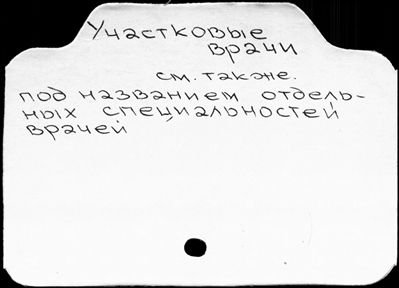 Участковые
врачи
см. также.
под названием отдель-
ных специальностей
врачей